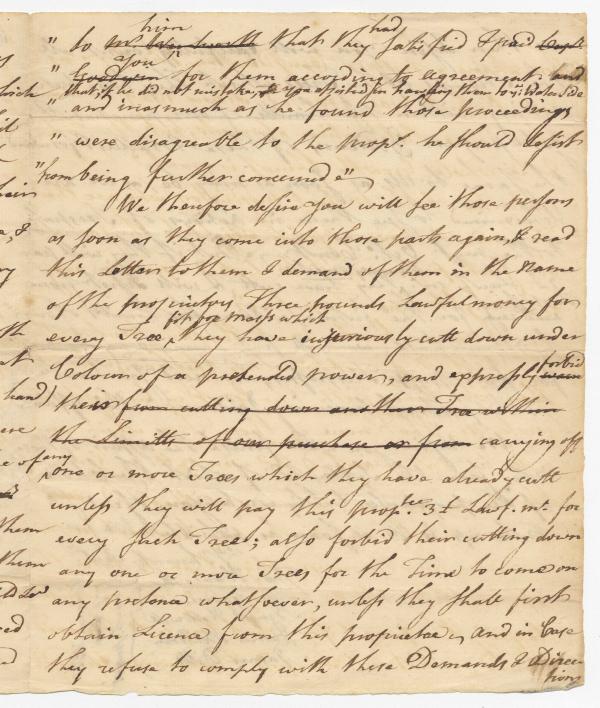 him had
" to Mr. Wentworth that they satisfied & paid Capt.
you
" Goodwin for them according to agreement and
that if he did not mistake, you assisted in hanging them to ye water side
" and inasmuch as he found those proceedings
" were disagreable to the propr. he should desist
" from being further concerned "
We therefore desire you will see those persons
as soon as they come into those parts again, & read
this Letter to them & demand of them in the Name
of the proprietors Three pounds Lawful money for
fit for masts which
every Tree, they have injuriously cutt down under
Colour of a pretended power, and expressly forbid warn
their from cutting down another Tree within
the Limitts of our purchase or from carrying off
any
one or more Trees which they have already cutt
unless they will pay this proprte. 3£ Lawf. my. for
every such Tree; also forbid their cutting down
any one or more Trees for the Time to come on
any pretence whatsoever, unless they shall first
obtain Licence from this propriete, and in Case
they refuse to comply with these Demands & Direc-
tions